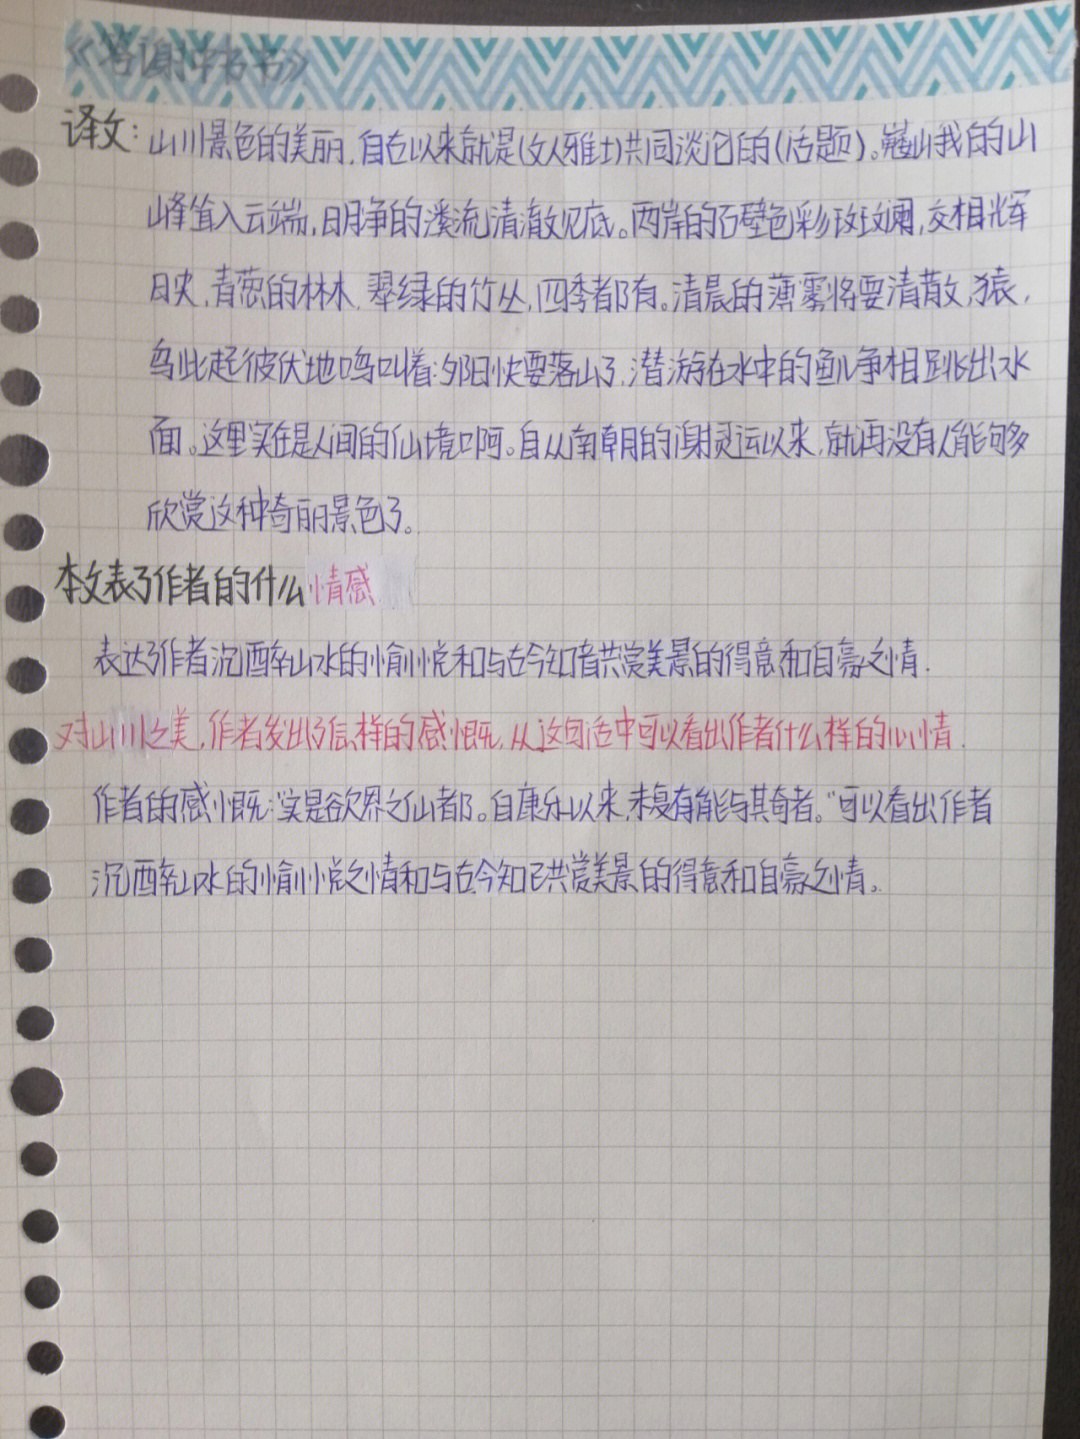 《答谢中书书》
译文:山川景色的美丽,自古以来就是(文人雅士)共同谈论的(话题)。巍峨的山
峰耸入云端,明净的溪流清澈见底。两岸的石壁色彩斑斓,交相辉
映,青葱的林木,翠绿的竹丛,四季都有。清晨的薄雾将要消散,猿,
鸟此起彼伏地鸣叫着;夕阳快要落山了,潜游在水中的鱼儿争相跳出水
面。这里实在是人间的仙境啊。自从南朝的谢灵运以来,就再没有人能够
欣赏这种奇丽景色了。
本文表了作者的什么情感
表达了作者沉醉山水的愉悦和与古今知音共赏美景的得意和自豪之情.
对山川之美,作者发出了怎样的感慨,从这句话中可以看出作者什么样的心情.
作者的感慨:实是欲界之仙都。自康乐以来,未复有能与其奇者。"可以看出作者
沉醉山水的愉悦之情和与古今知己共赏美景的得意和自豪之情。